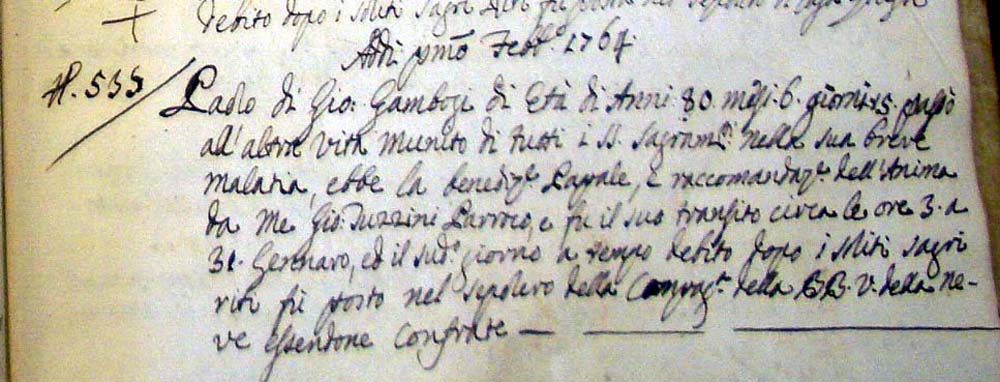 debito dopo i soliti sagri riti fù posto nel sepolcro
Addì pmo Febb.o 1764.
N. 535
Paolo di Gio: Gambogi di Età di Anni 80. mesi 6. giorni 15. passò
all'altra Vita munito di tutti i SS. Sagram.ti nella sua breve
malatia, ebbe la benediz.e Papale, e raccomandaz.e dell'Anima
da me Gio: Tuzzini Parroco, e fù il suo transito circa le ore 3. a
31. Gennaro, ed il sud.o giorno a tempo debito dopo i soliti sagri
riti fù posto nel sepolcro della Compag.a della BB. V. della ne-
ve essendone Confrate